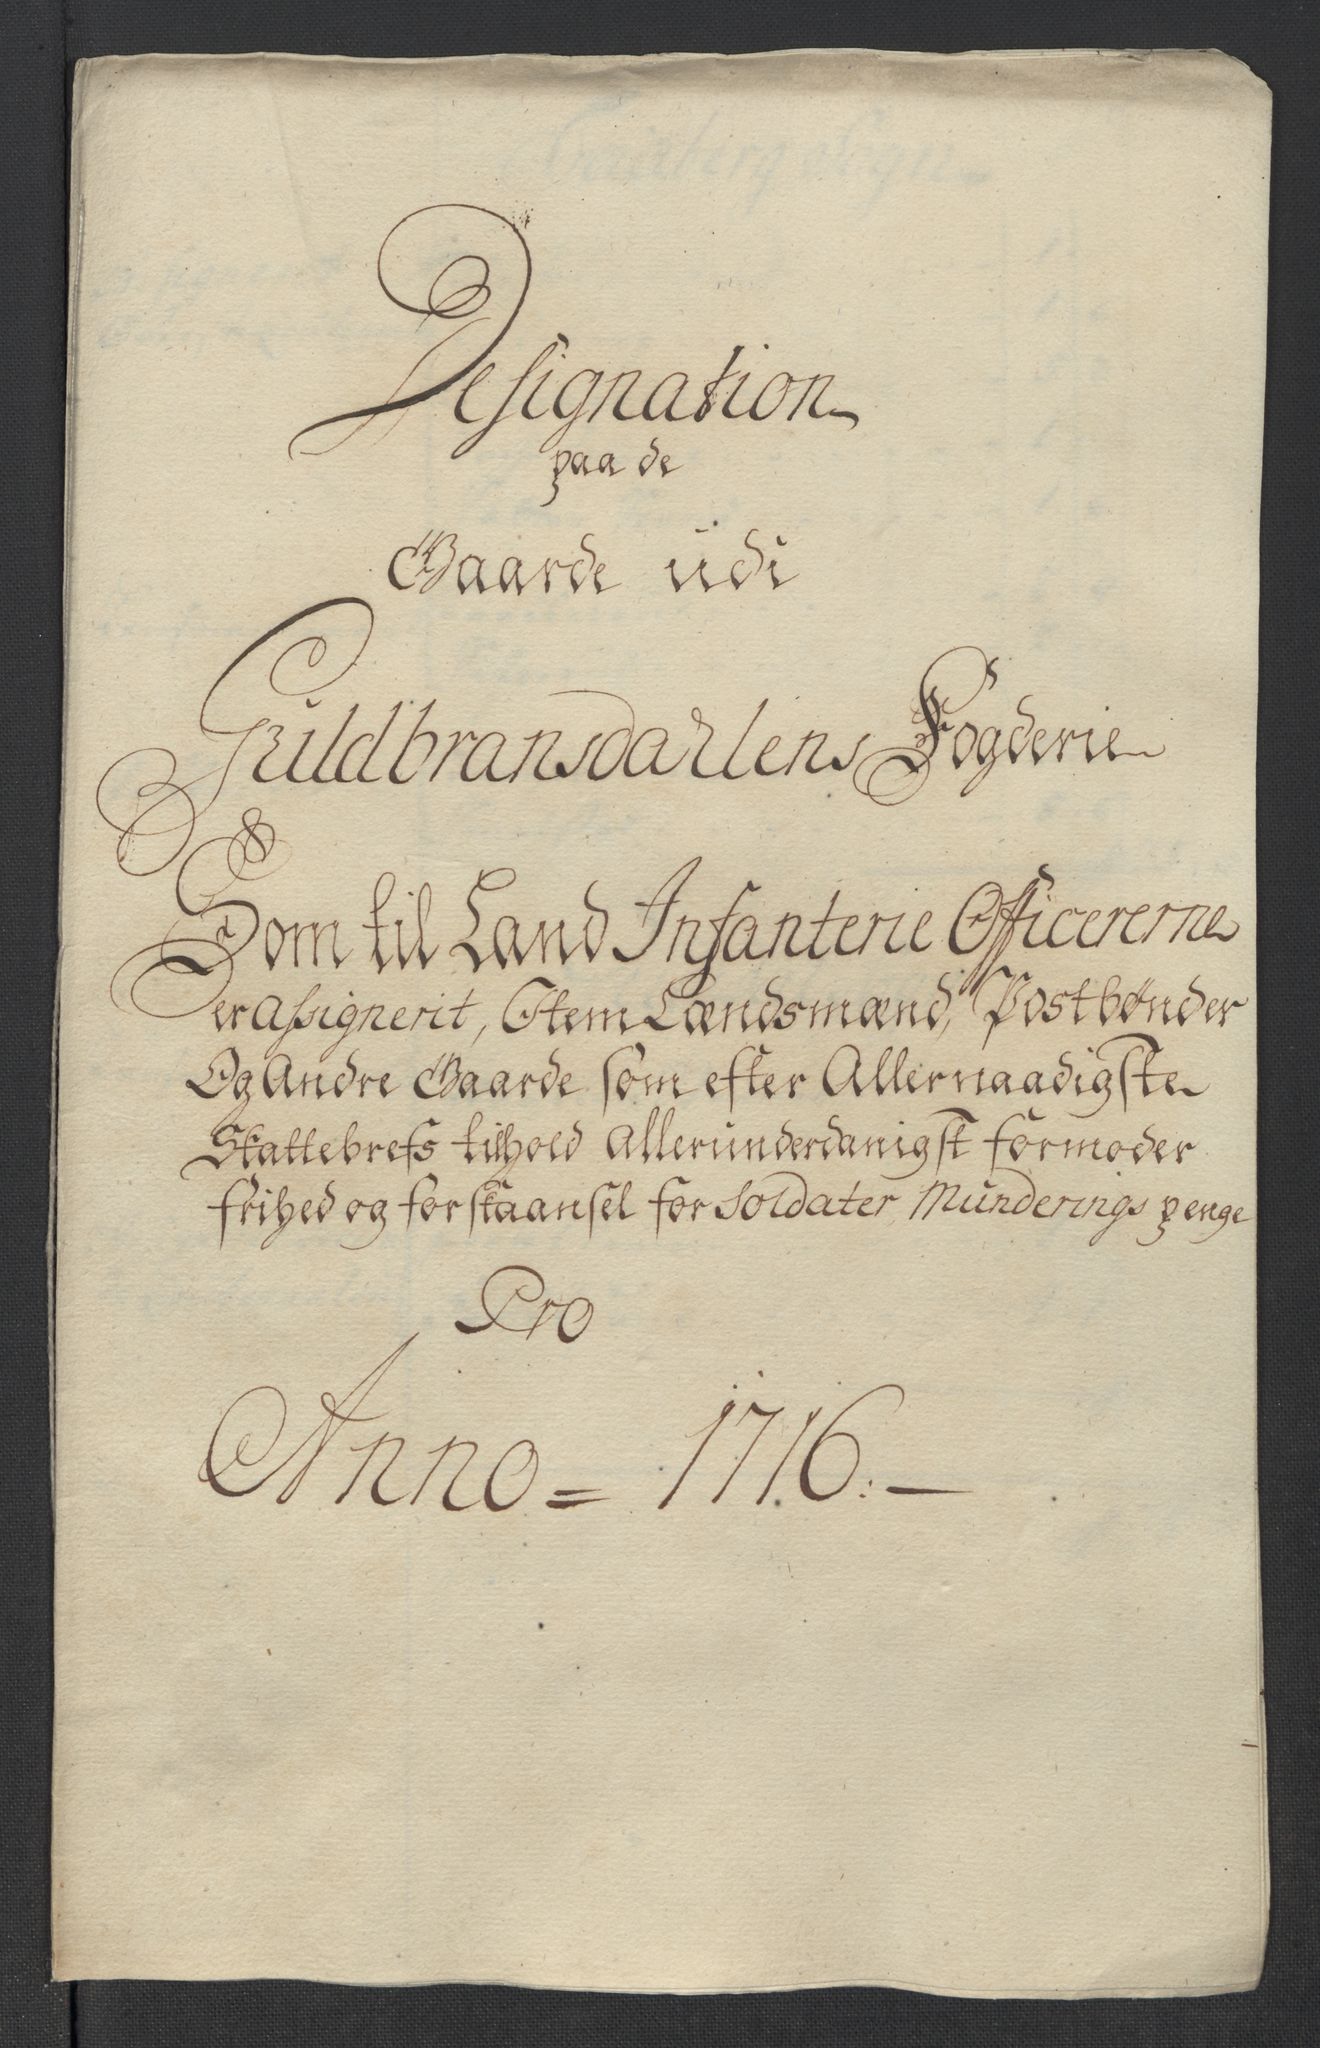 Designation
paa de
Gaarde udi
Guldbransdarlens Fogderie
Som til Land Infanterie Officererne
er assignerit, Item Lændsmænd, Postbønder
Og Andre Gaarde som efter Allernaadigste
Skattebrefs tilhold Allerunderdanigst formoder
frihed og forskaansel for Soldater Munderings penge
Pro
Anno = 1716. —